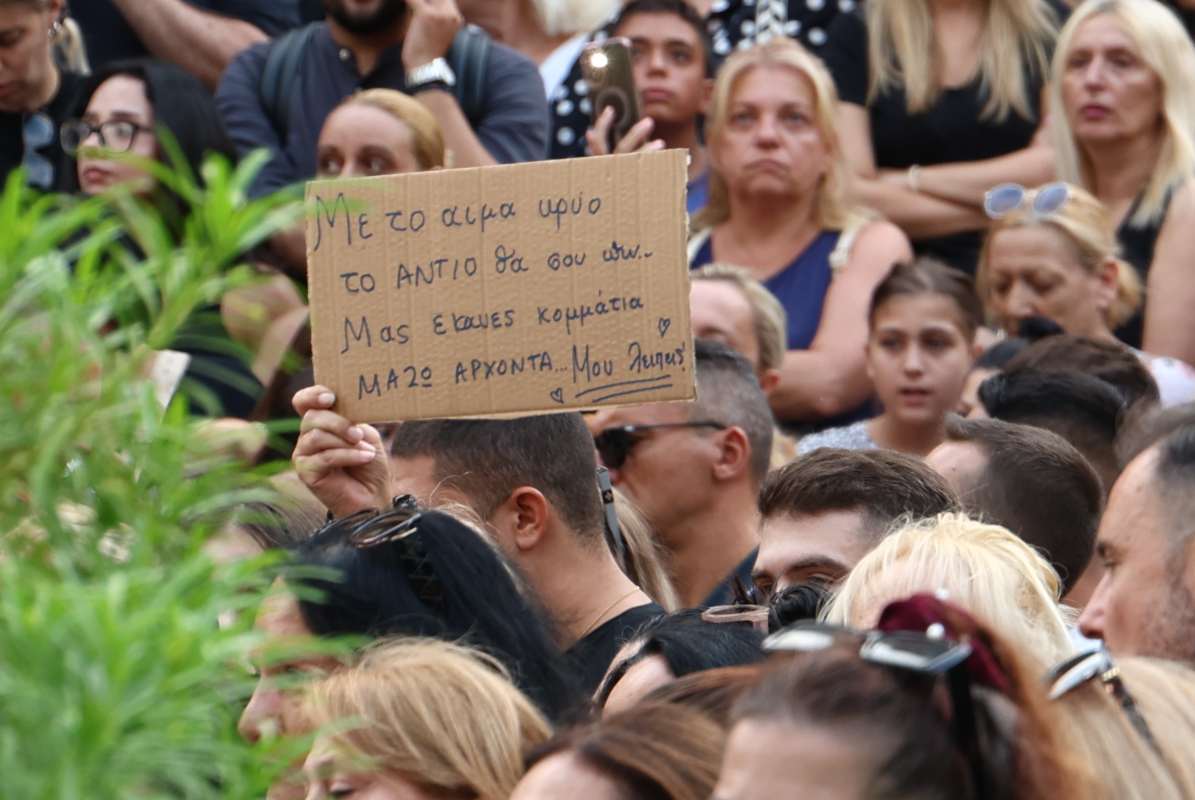 Με το αιμα κρύο
το ΑΝΤΙΟ θα σου πω..
Μας έκανες κομμάτια
ΜΑΖΩ ΑΡΧΟΝΤΑ... Μου λείπεις!